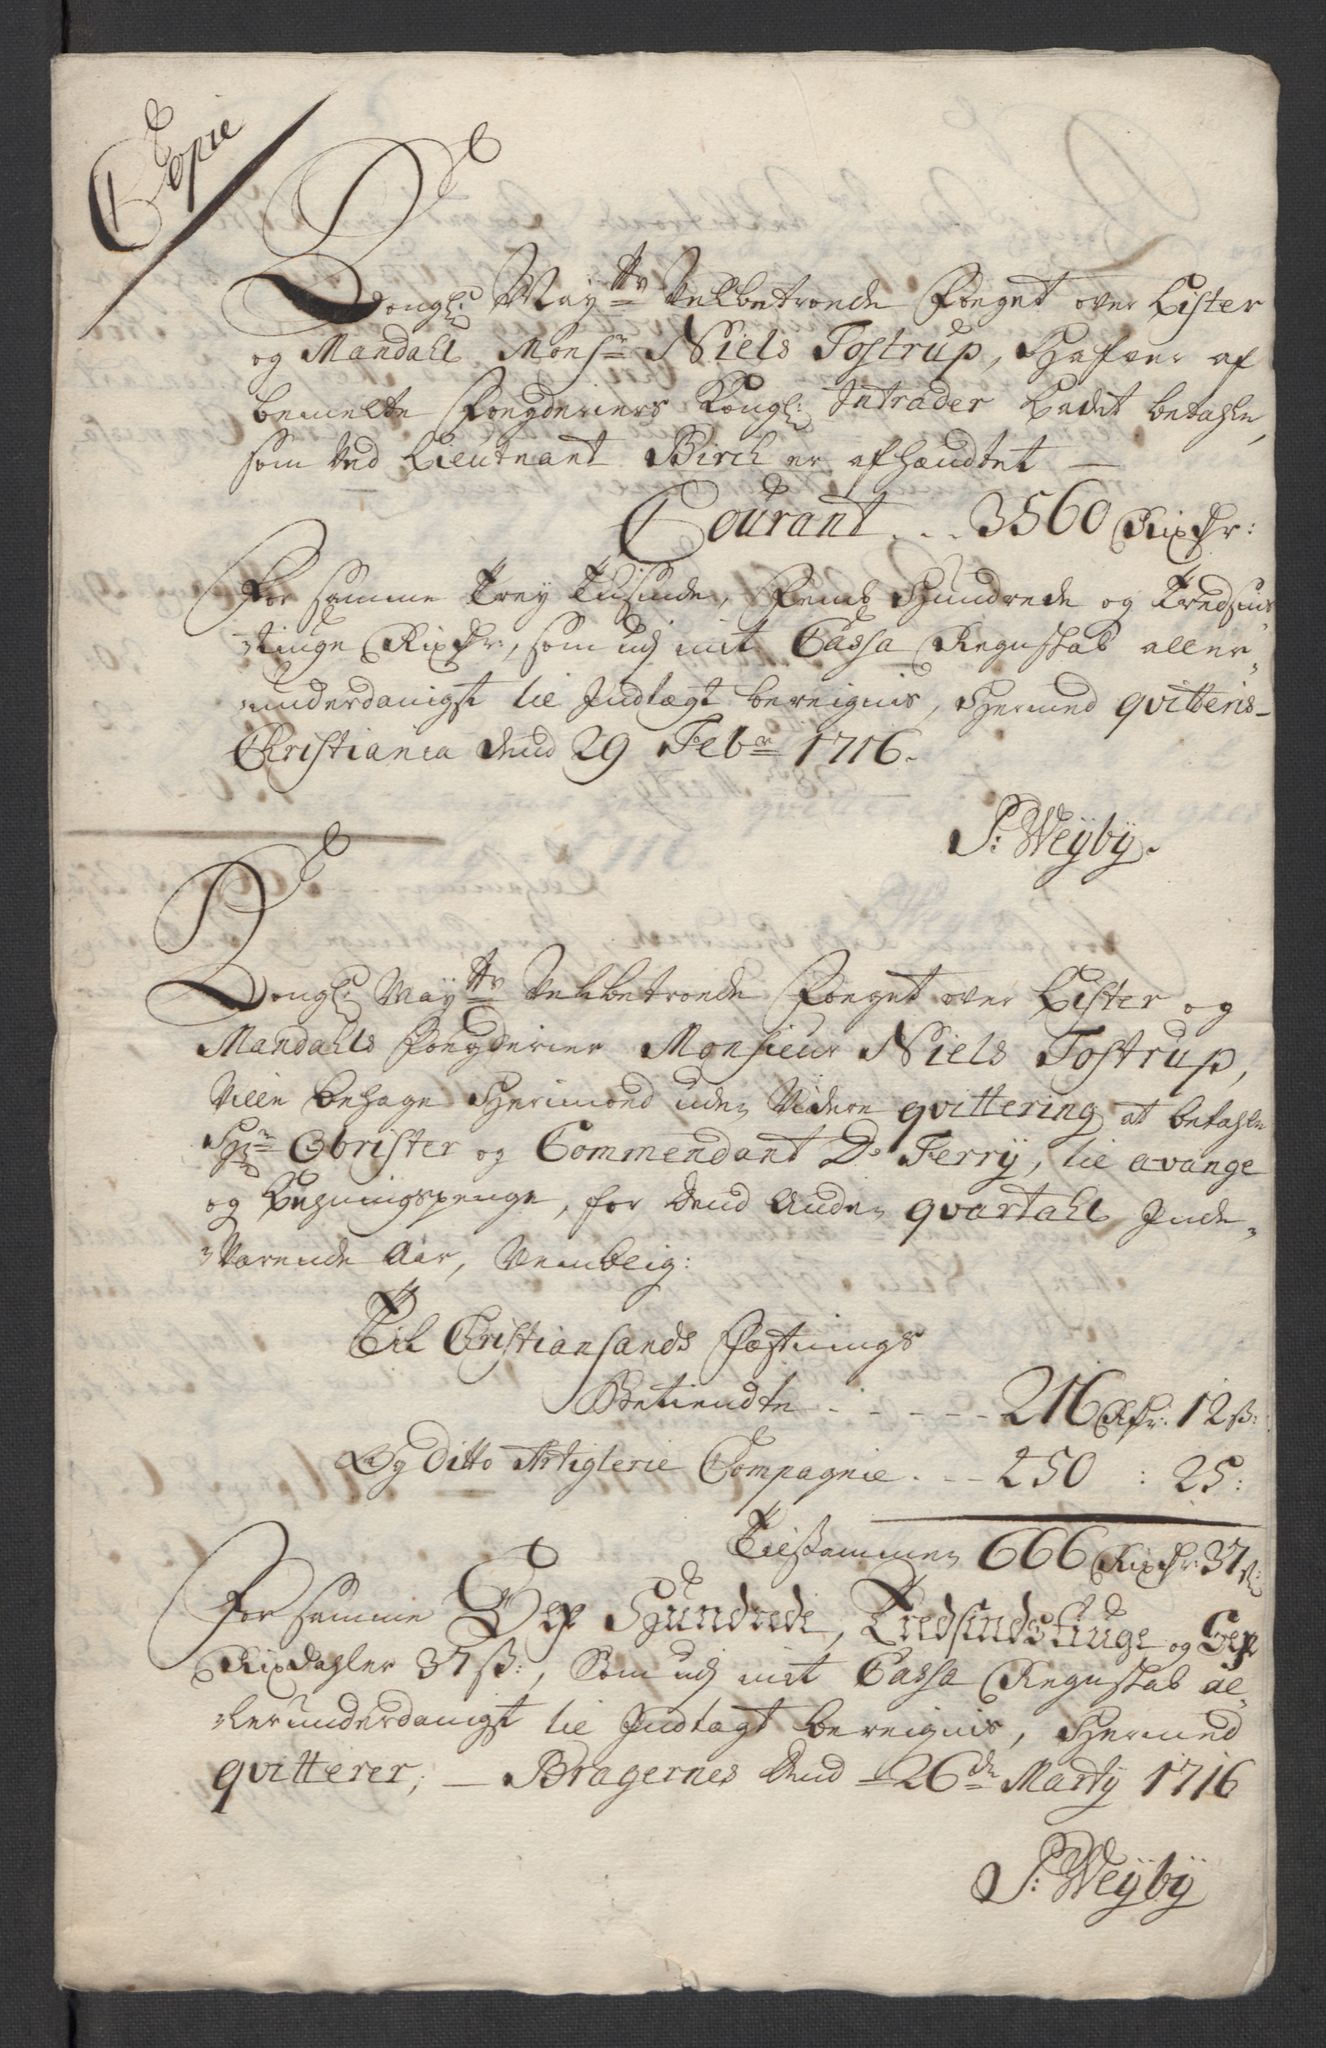 Copie
Kongl: May.tts Velbetroede Foeget over Lister
og Mandahl Monsr Niels Tostrup, Hafver af
bemelte Foegderiers Kongl: Intrader ladet betahle,
som ved Lieutnant Birch er afhændtet —
Courant . . . 3560 Rixdr:
For samme Trey Tusinde, Femb Hundrede og Tredsinds
tiuge Rixdr, som udj mit Cassa Regnskab aller-
underdanigst til Indtægt bereignis, Hermed qvitteris-
Christiania dend 29 Febr 1716.
S: Weÿbÿ.
Kongl: May.tts Velbetroede Foeget over Lister og
Mandahls Foegderier Monsieur Niels Tostrup,
Ville behage Herimod uden Videre qvittering at betahle
Hr Obrister og Commendant D. Ferrÿ, til avange
og Lehningspenge, for dend Anden qvartahl Inde-
Værende Aar, Nemblig:
Til Christiansands Fæstnings
Betiendte - - - - - 216 Rdr: 12 ß:
Og Ditto Artiglerie Compagnie . . - - 250 : 25:
Tilsammen 666 Rixdr 37 ß:
For samme Sex Hundrede, Tredsindstiuge og Sex
Rixdahler 37 ß:, Som udj mit Cassa Regnskab al-
lerunderdanigst til Indtægt bereignis, Hermed
qvitterer; — Bragernes dend 26de Martÿ 1716
S: Weÿbÿ